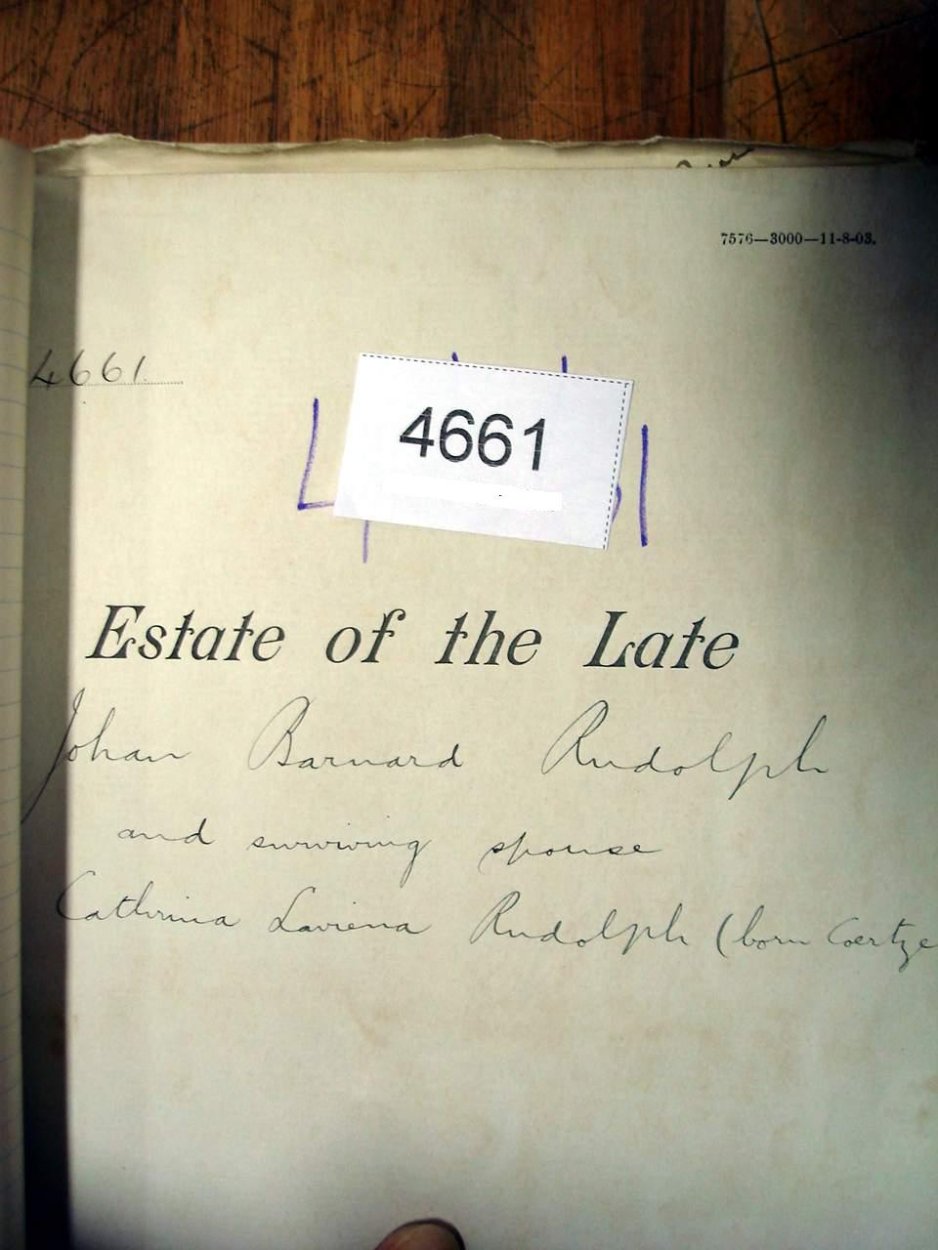 7576—3000—11-8-03.
4661
4661
Estate of the Late
Johan Barnard Rudolph
and surviving spouse
Cathrina Laviena Rudolph (born Coertze